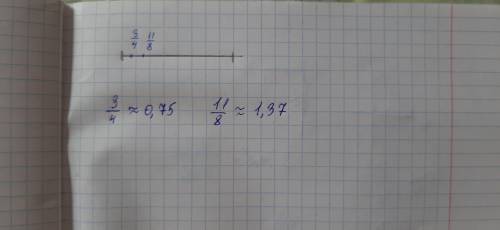 3/4 11/8
3/4 ≈ 0,75 11/8 ≈ 1,37